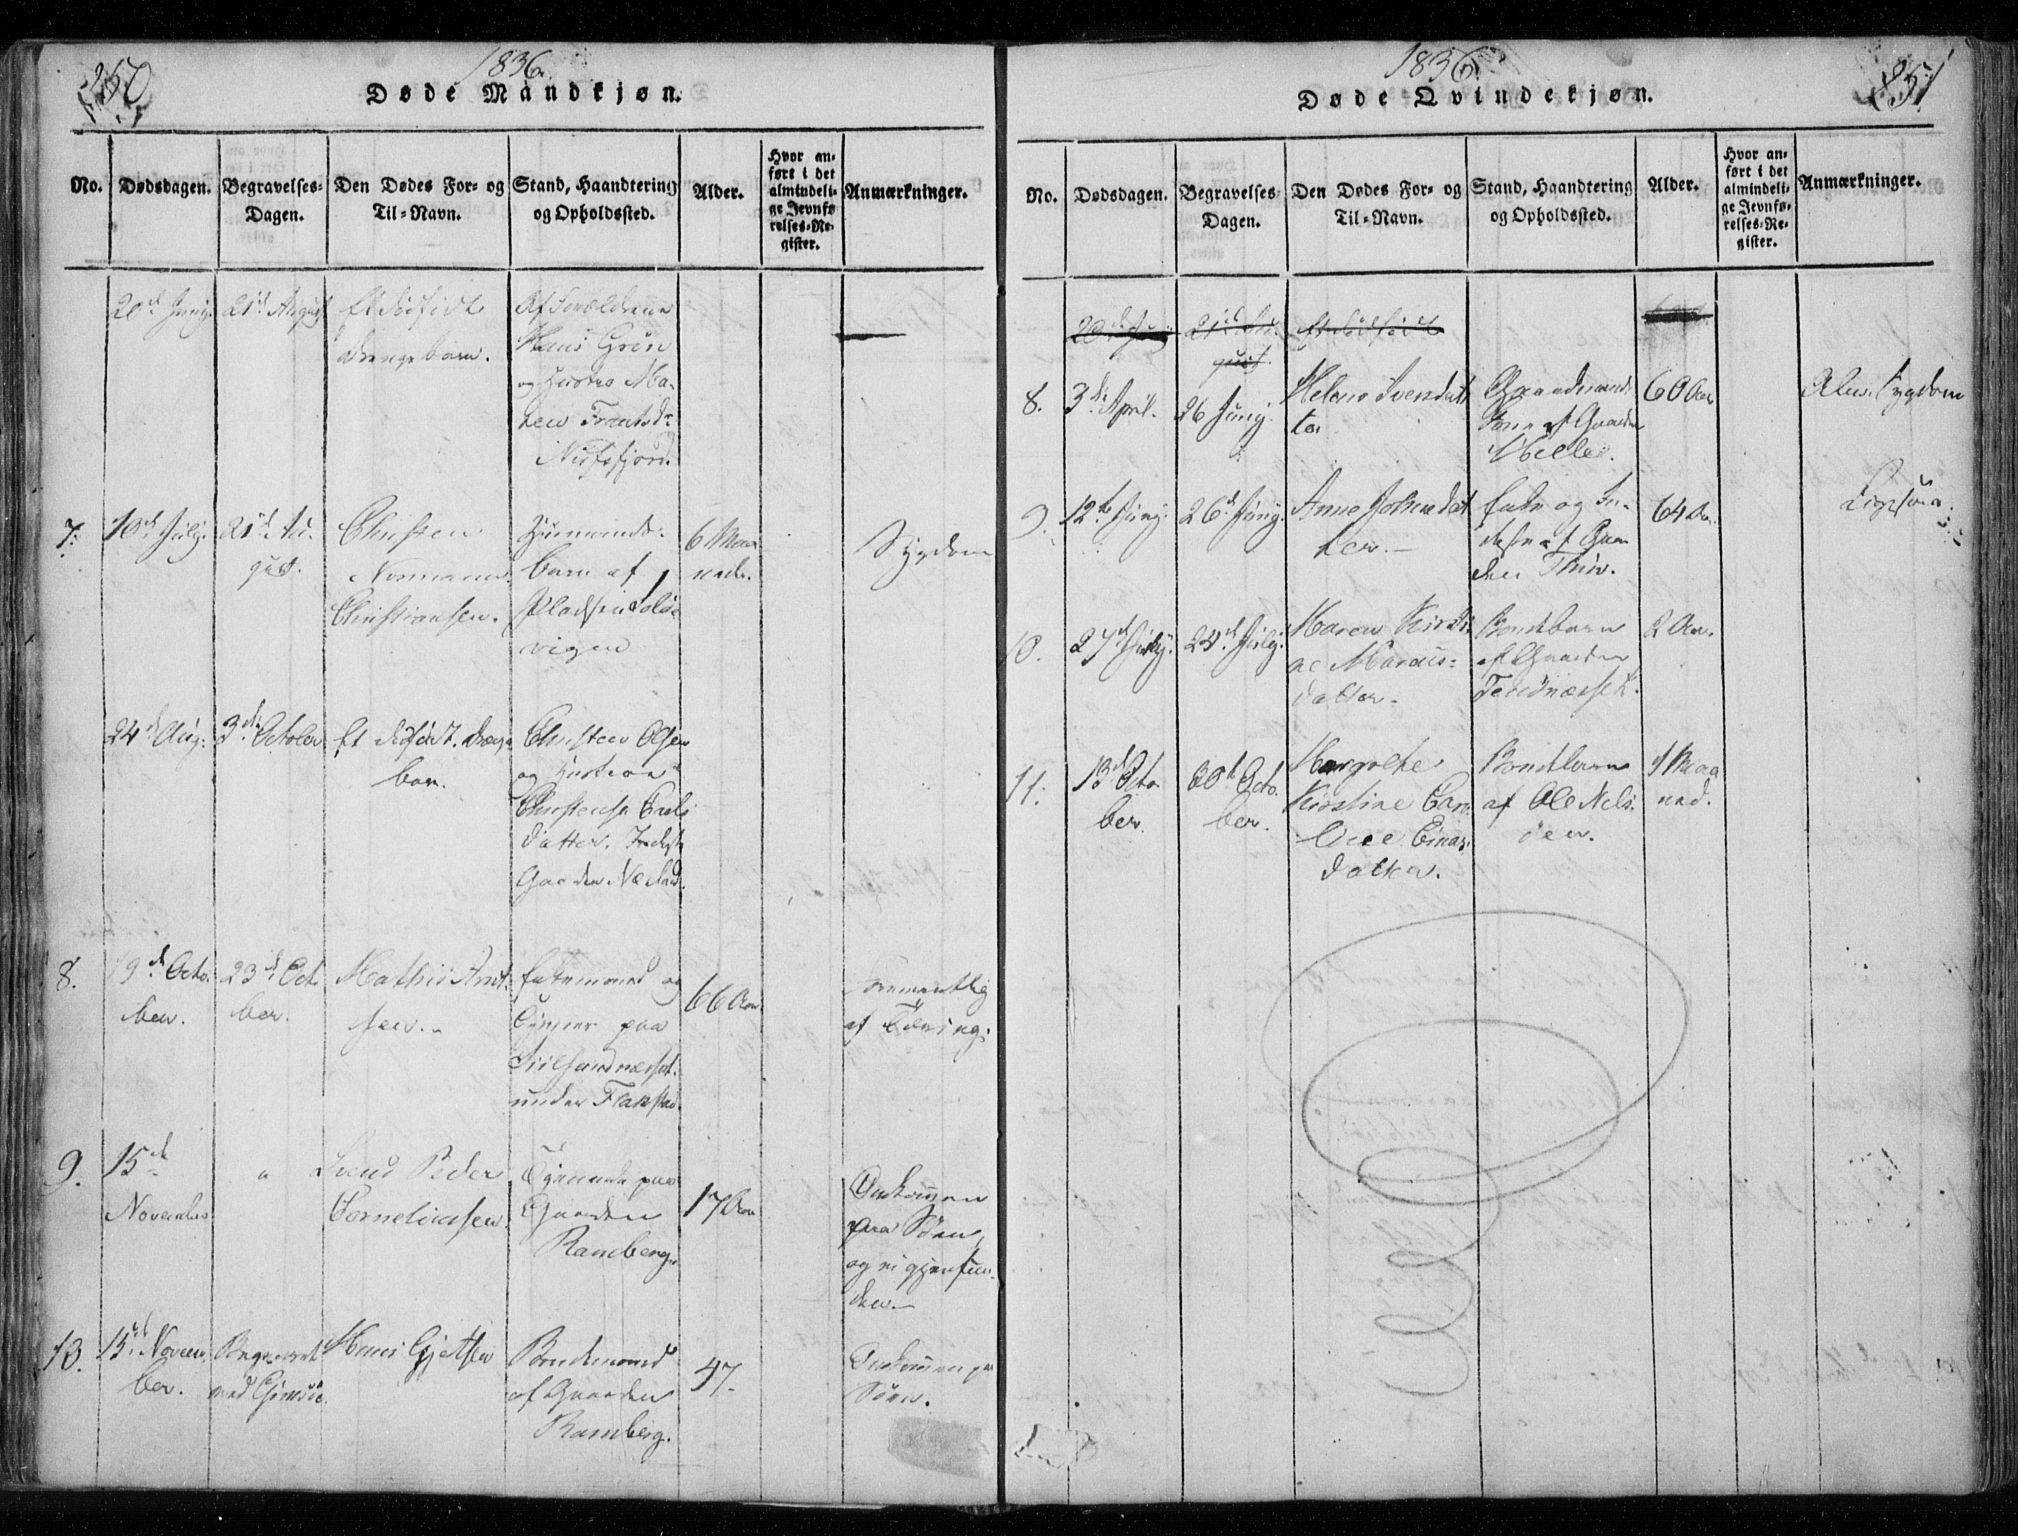 250
1836.
Døde Mandkjøn.
No.
Dødsdagen.
Begravelses-
Dagen.
Den Dødes For- og
Til-Navn.
Stand, Haandtering
og Opholdssted.
Alder.
Hvor an-
ført i det
almindeli-
ge Jevnfø-
relses-Re-
gister.
Anmærkninger.
20de Juny.
21de August
Et dødfødt
drengebarn.
Af Forældrene
Hans Grøn
og Hustru Ma-
Frantsdr
Nufsfjord.
7.
10de July.
21de Au-
gust.
Christen
Normann
Christiansen.
Huusmands-
barn af
Pladsen
vigen
6 Maa-
neder.
Sygdom
24de Aug:
3de October
Et dødfødt drenge
barn.
Christen Olsen
og Hustrue
datter. Inderst
Gaarden
8.
19de Octo-
ber.
23de Octo
ber.
Mathis Arnt-
sen.
Enkemand og
paa
under Flakstad.
66 Aar.
formentlig
af Tæring.
9.
15de
November
"
Svend Peder
Corneliussen.
Tjenende paa
Gaarden
Ramberg.
17 Aar
Omkommen
paa Søen,
og ei gjenfun-
den.
10.
15de Novem-
ber.
Begravet
ved Gimsøe.
Hans Gjertsen
Bondemand
af Gaarden
Ramberg.
47.
Omkommen paa
Søen.
1836.
251
Døde Qvindekjøn.
No.
Dødsdagen.
Begravelses-
Dagen.
Den Dødes For- og
Til-Navn.
Stand, Haandtering
og Opholdssted.
Alder.
Hvor an-
ført i det
almindeli-
ge Jevnfø-
relses-Re-
gister.
Anmærkninger.
20de Juny
21de Au-
gust.
Et dødfødt
8.
3de April.
26 Juny.
Helena Svendat-
ter
Gaardmands
Kone af Gaarden
60 Aar
Alm. Sygdom
9.
12te Juny.
26de Juny.
Anne Johnsdat
ter.
Enke og In-
derste af Gaar
den
64 Aar.
Ligesaa.
10.
27de Juny.
24de July.
Maren Kirsti-
ne
datter.
Bondebarn
af Gaarden
2 Aar.
11.
13de Octo-
ber.
30te Octo-
ber.
Margrethe
Kirstine Caro-
line Einar-
datter.
Bondebarn
af Ole Nels-
øen.
1 Maa
ned.